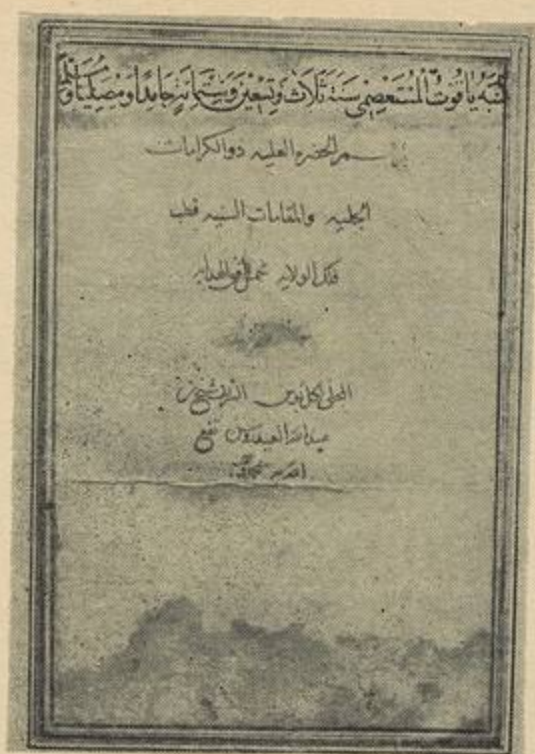 كتبه ياقوت المستعصمي سنة ثلاث وتسعين وستمائة حامدا ومصليا
برسم الحضره العليه ذو الكرامات
الجليه والمقامات السنيه قطب
فلك الولايه شمس افق الهدايه
المحلى بكل الشيخ بن
عبد الله العيدروس نفع
الله به